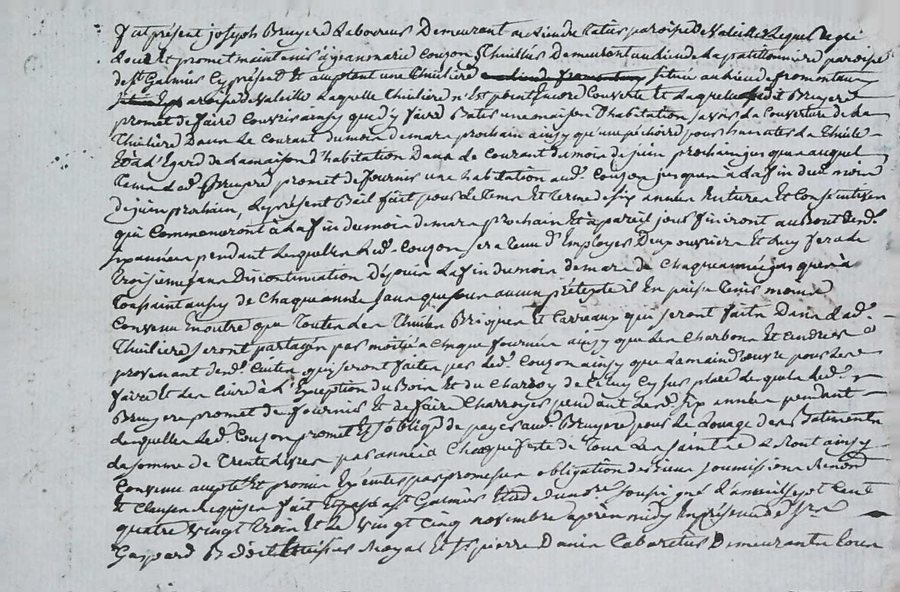 fut présent joseph Bruyere Laboureur Demeurant au lieu de paroisse de Valeille Lequel de gré
Loue et promet maintenir à jean marie Couzon Thuillier Demeurant au lieu de La paroisse
de St Galmier Cy présent et acceptant une Thuilière situé au lieu de fromentau
paroisse de Valeille Laquelle Thuilière n'est point Encore Couverte Et Laquelle Ledit Bruyere
promet de faire Couvrir ainsy que d'y faire Batir une maison D'habitation savoir La Couverture de La
Thuilière Dans Le Courant du mois de mars prochain ainsy qu'une péchoire pour La Thuile
Et à L'Egard de La maison D'habitation Dans Le Courant du mois de juin prochain jusques auquel
tems Led. Bruyere promet de fournir une habitation aud. Couzon jusques à La fin du mois
de juin prochain, Le present Bail fait pour Le tems Et terme de six années Entieres Et Consecutives
qui Commenceront à La fin du mois de mars prochain Et à pareil jour finiront au Bout desd.
six années pendant Lesquelles Led. Couzon sera tenu D'Employer Deux ouvriers Et Luy fera Le
troisieme sans Discontinuation Depuis La fin du mois de mars de Chaque année jusques à
Toussaint aussy de Chaque année sans que sous aucun prétexte il En puisse tenir moins
Convenu En outre que Toutes Les Thuiles Briques Et Carreaux qui seront faits Dans Lad.
Thuilière seront partagés par moitié à Chaque fournée ainsy que Les Charbons Et Cendres
provenant desd. Cuites qui seront faites par Led. Couzon ainsy que La main D'œuvre pour Les
faire Et Les Cuire à L'Exception du Bois Et du Charroy de Celuy Cy sur place Lesquels Led.
Bruyere promet de fournir Et de faire Charroyer pendant Lesd. six années pendant
Lesquelles Led. Couzon promet Et s'oblige de payer aud. Bruyere pour Le Louage desd. Batiments
La somme de Trente Livres par année à Chaque fete de Tous Les saints Le tout ainsy
Convenu accepté Et promis Executer par promesses obligations des Biens soumissions Renon.
Et Clauses Requises fait Et passé à St Galmier Etude du nore soussigné L'an mil sept Cent
quatre vingt trois Et Le vingt Cinq novembre après midy En présence de sieur
Gaspard Et sr pierre Cabaretier Demeurants Tous